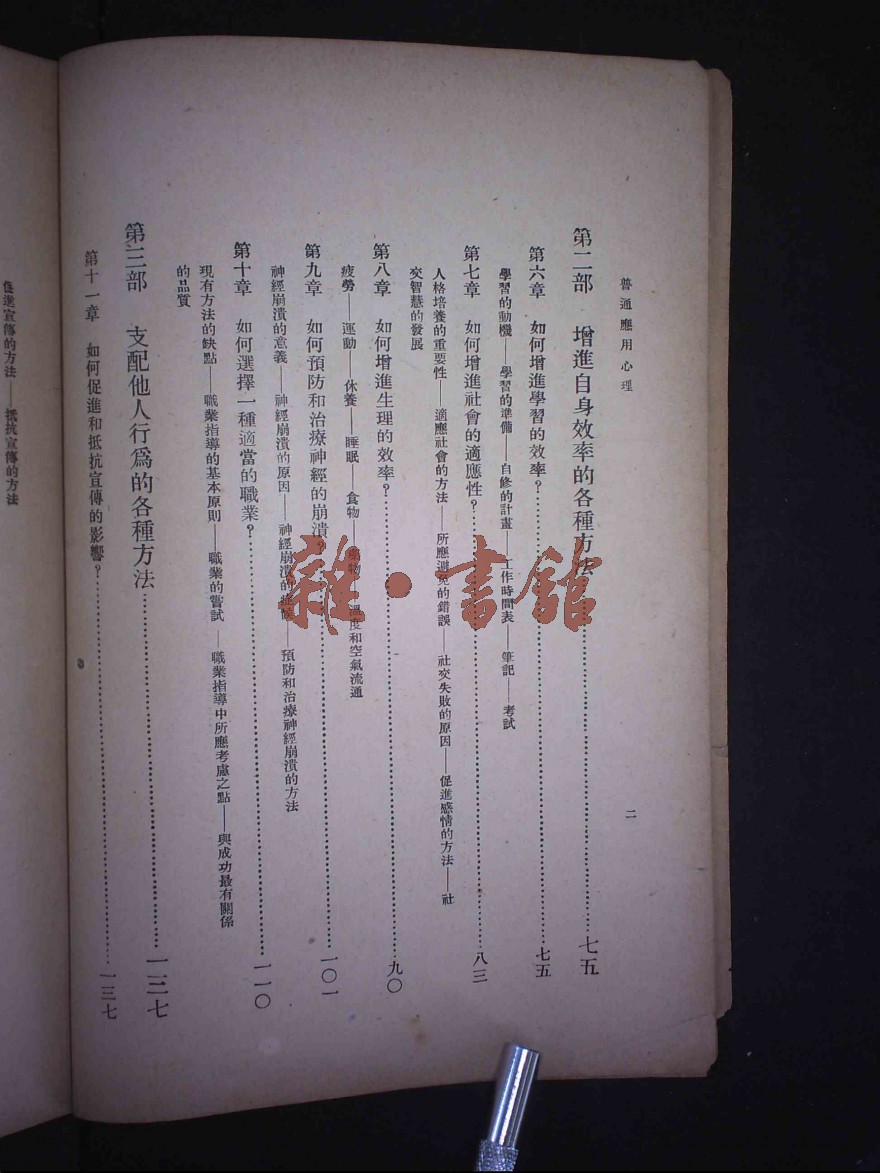 普通應用心理
二
第二部　增進自身效率的各種方法……七五
第六章　如何增進學習的效率？……七五
學習的動機——學習的準備——自修的計畫——工作時間表——筆記——考試
第七章　如何增進社會的適應性？……八三
人格培養的重要性——適應社會的方法——所應避免的錯誤——社交失敗的原因——促進感情的方法——社
交智慧的發展
第八章　如何增進生理的效率？……九〇
疲勞——運動——休養——睡眠——食物——藥物——溫度和空氣流通
第九章　如何預防和治療神經的崩潰？……一〇一
神經崩潰的意義——神經崩潰的原因——神經崩潰的症候——預防和治療神經崩潰的方法
第十章　如何選擇一種適當的職業？……一一〇
現有方法的缺點——職業指導的基本原則——職業的嘗試——職業指導中所應考慮之點——與成功最有關係
的品質
第三部　支配他人行爲的各種方法……一三七
第十一章　如何促進和抵抗宣傳的影響？……一三七
促進宣傳的方法——抵抗宣傳的方法
雜·書館